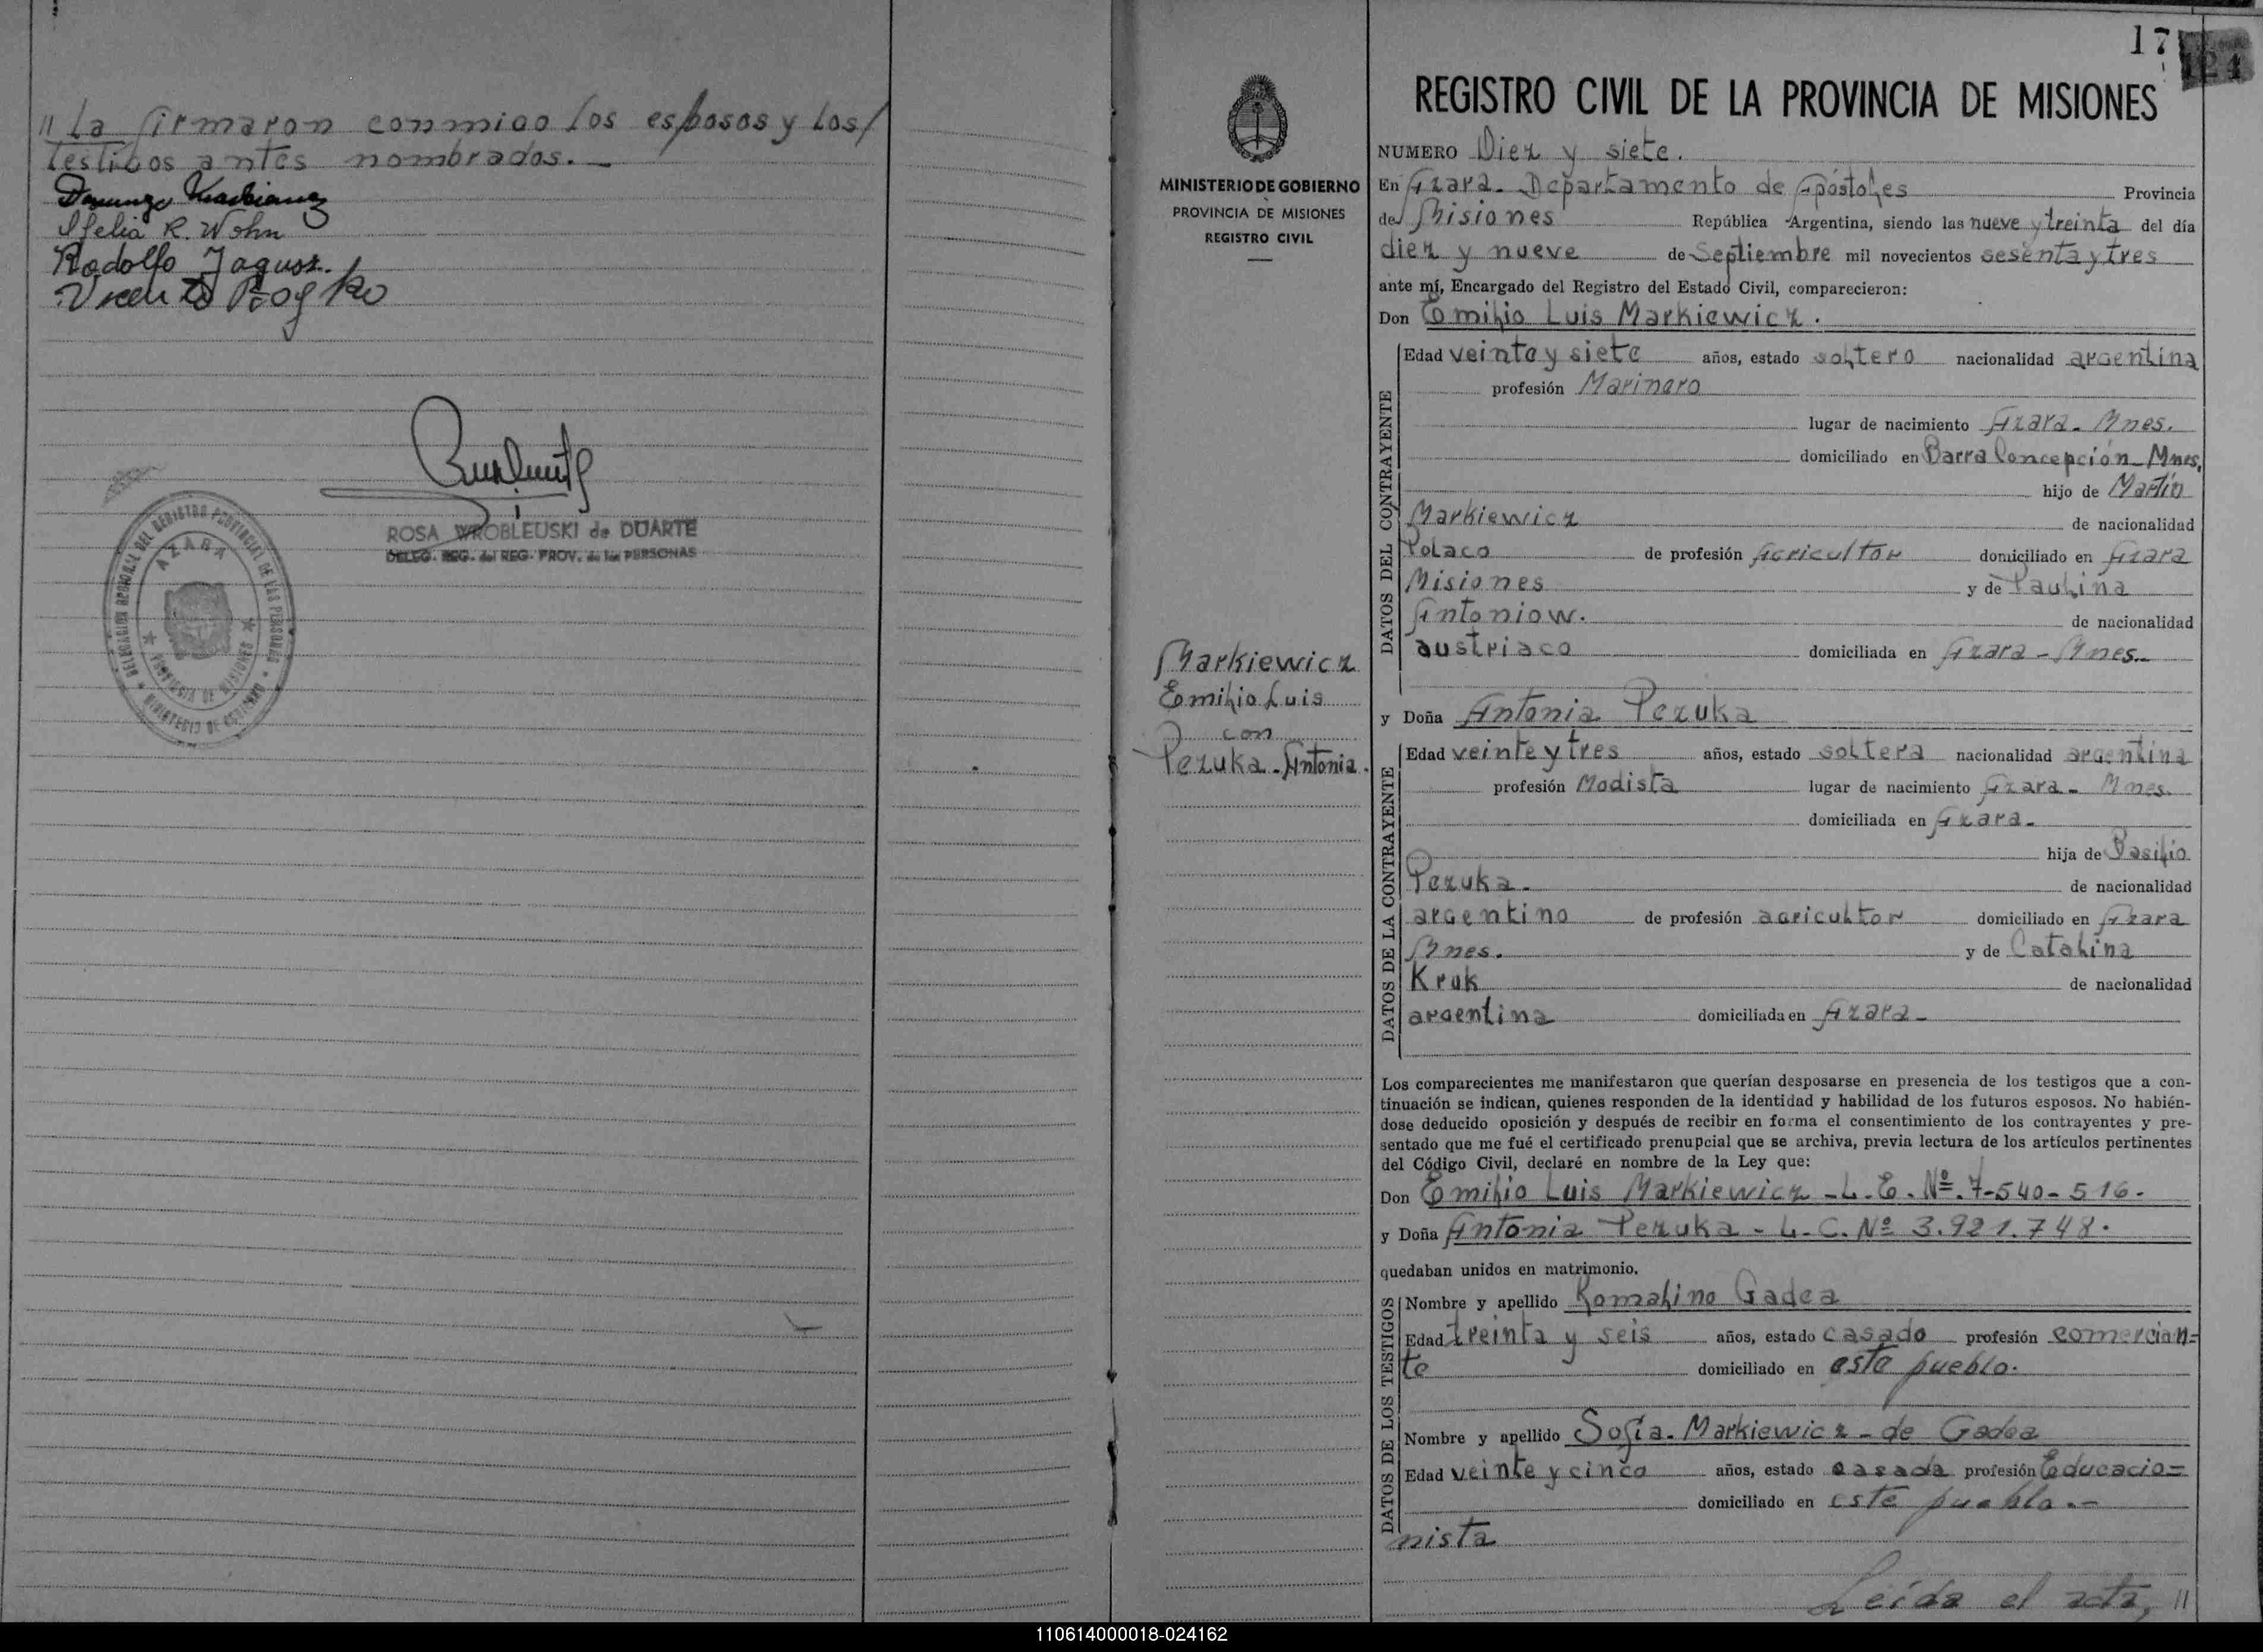 " La firmaron conmigo los esposos y los/
testigos antes nombrados. —
Ofelia R. Wohn
Rodolfo Jagusz.
ROSA WROBLEUSKI de DUARTE
DELEG. REG. del REG. PROV. de las PERSONAS
DELEGACION REGIONAL DEL REGISTRO PROVINCIAL DE LAS PERSONAS
MINISTERIO DE GOBIERNO
AZARA
PROVINCIA DE MISIONES
MINISTERIO DE GOBIERNO
PROVINCIA DE MISIONES
REGISTRO CIVIL
Markiewicz
Emilio Luis
con
Pezuka - Antonia.
17
124
REGISTRO CIVIL DE LA PROVINCIA DE MISIONES
NUMERO Diez y siete.
En Azara - Departamento de Apóstoles Provincia
de Misiones República Argentina, siendo las nueve y treinta del día
diez y nueve de Septiembre mil novecientos sesenta y tres
ante mí, Encargado del Registro del Estado Civil, comparecieron:
Don Emilio Luis Markiewicz.
DATOS DEL CONTRAYENTE
Edad veinte y siete años, estado soltero nacionalidad argentina
profesión Marinero
lugar de nacimiento Azara - Mnes.
domiciliado en Barra Concepción - Mnes.
hijo de Martín
Markiewicz de nacionalidad
Polaco de profesión agricultor domiciliado en Azara
Misiones y de Paulina
Antoniow. de nacionalidad
austriaco domiciliada en Azara - Mnes.
y Doña Antonia Pezuka
DATOS DE LA CONTRAYENTE
Edad veinte y tres años, estado soltera nacionalidad argentina
profesión Modista lugar de nacimiento Azara - Mnes.
domiciliada en Azara -
hija de Basilio
Pezuka - de nacionalidad
argentino de profesión agricultor domiciliado en Azara
Mnes. y de Catalina
Kruk de nacionalidad
argentina domiciliada en Azara -
Los comparecientes me manifestaron que querían desposarse en presencia de los testigos que a con-
tinuación se indican, quienes responden de la identidad y habilidad de los futuros esposos. No habién-
dose deducido oposición y después de recibir en forma el consentimiento de los contrayentes y pre-
sentado que me fué el certificado prenupcial que se archiva, previa lectura de los artículos pertinentes
del Código Civil, declaré en nombre de la Ley que:
Don Emilio Luis Markiewicz - L. E. Nº. 7-540-516 -
y Doña Antonia Pezuka - L. C. Nº 3.921.748.
quedaban unidos en matrimonio.
DATOS DE LOS TESTIGOS
Nombre y apellido Romalino Gadea
Edad treinta y seis años, estado casado profesión comercian=
te domiciliado en este pueblo.
Nombre y apellido Sofía - Markiewicz - de Gadea
Edad veinte y cinco años, estado casada profesión Educacio=
domiciliado en este pueblo. -
nista
Leída el acta, "
110614000018-024162